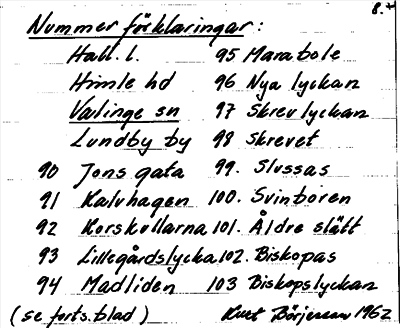 8.
Nummer förklaringar:
Hall. l. 95 Marabole
Himle hd 96 Nya lyckan
Valinge sn 97 Skrevlyckan
Lundby by 98 Skrevet
90 Jons gata 99. Slussas
91 Kalvhagen 100. Svinboren
92 Korskullarna 101. Äldre slätt
93 Lillegårdslycka 102. Biskopas
94 Madliden 103 Biskopslyckan
(se forts.blad) Kurt Börjesson 1962